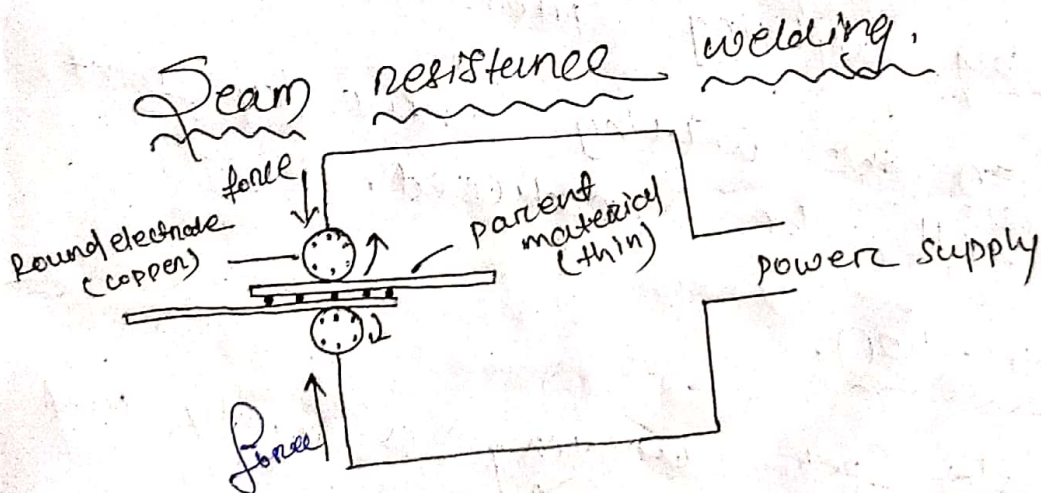 Seam resistance welding.
force
Round electrode
(copper)
parent
material
(thin)
power supply
force